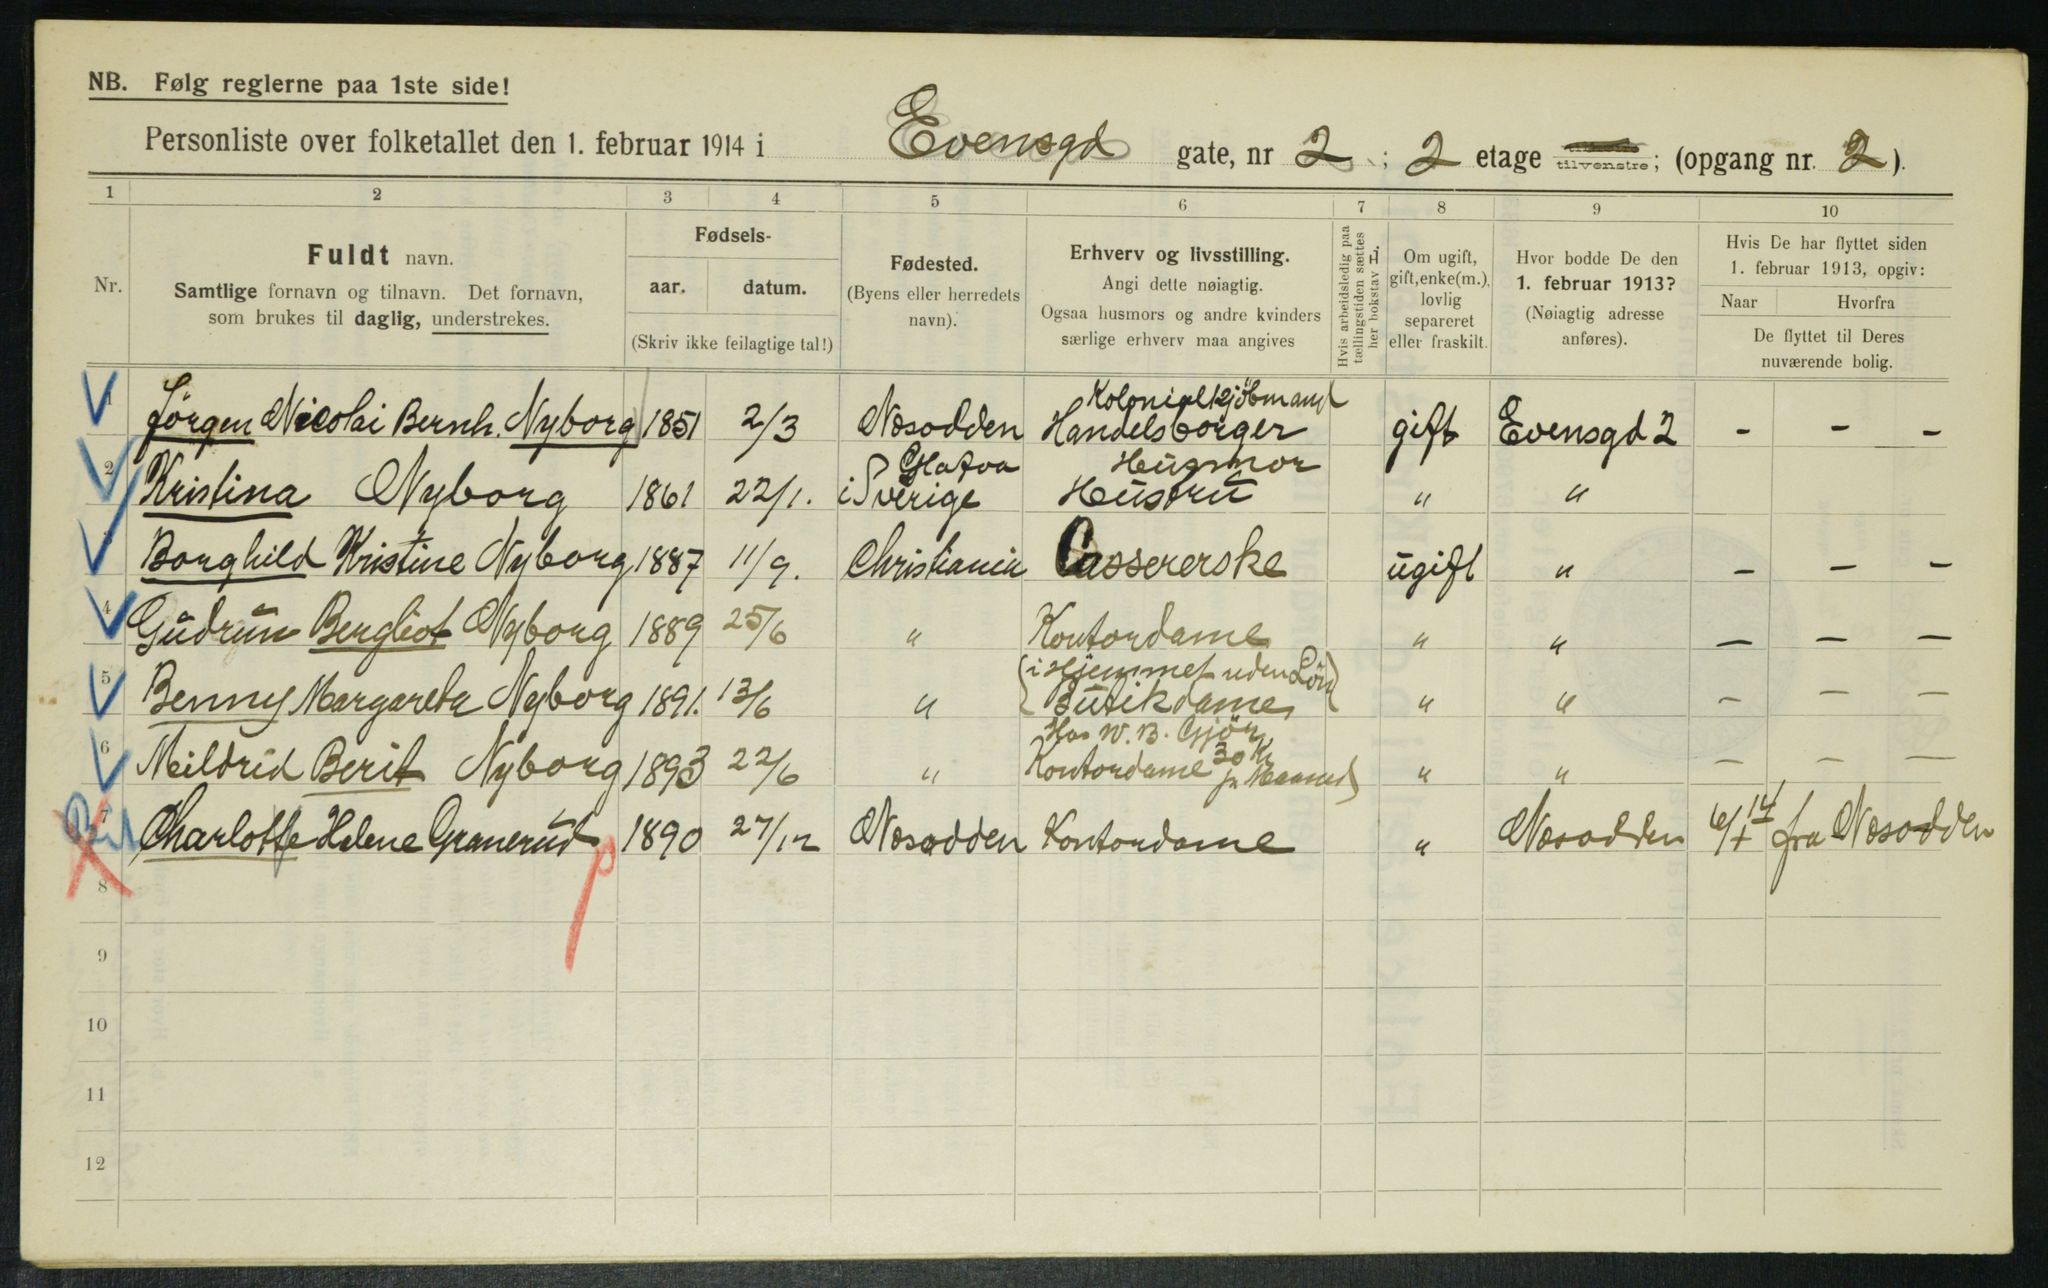 NB. Følg reglerne paa 1ste side!
Personliste over folketallet den 1. februar 1914 i Evensgd gate, nr 2 ; 2 etage tilvenstre; (opgang nr. 2 ).
1 2 3 4 5 6 7 8 9 10
Nr.
Fuldt navn.
Samtlige fornavn og tilnavn. Det fornavn,
som brukes til daglig, understrekes.
Fødsels-
aar. datum.
(Skriv ikke feilagtige tal!)
Fødested.
(Byens eller herredets
navn).
Erhverv og livsstilling.
Angi dette nøiagtig.
Ogsaa husmors og andre kvinders
særlige erhverv maa angives
Hvis arbeidsledig paa
tællingstiden sættes
her bokstav L.
Om ugift,
gift, enke(m.),
lovlig
separeret
eller fraskilt.
Hvor bodde De den
1. februar 1913?
(Nøiagtig adresse
anføres).
Hvis De har flyttet siden
1. februar 1913, opgiv:
Naar Hvorfra
De flyttet til Deres
nuværende bolig.
Kolonialkjöbmand
1 Jörgen Nicolai Bernh. Nyborg 1851 2/3 Nesodden Handelsborger gift Evensgd 2 - - -
Glafva Husmor
2 Kristina Nyborg 1861 22/1. i Sverige Hustru " "
3 Borghild Kristine Nyborg 1887 11/9. Christiania Cassererske ugift " - - -
4 Gudrun Bergliot Nyborg 1889 25/6 " Kontordame " " - - -
(i Hjemmet uden Lön)
5 Benny Margareta Nyborg 1891. 13/6 " Butikdame " " -
Hos W. B. Gjör
6 Meildrid Berit Nyborg 1893 22/6 " Kontordame 30 Kr " " - - -
pr Maaned)
7 Charlotte Helene Granerud 1890 27/12 Nesodden Kontordame " Nesodden 6/1 14 fra Nesodden
8
9
10
11
12